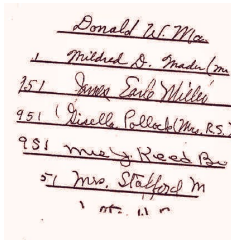 Donald W. Ma
1 Mildred D. Mader (m
951 James Earle Willis
951 Giselle Pollock (Mrs. R.S.)
951 Mrs. Reed Bu
51 Mrs. Stafford M